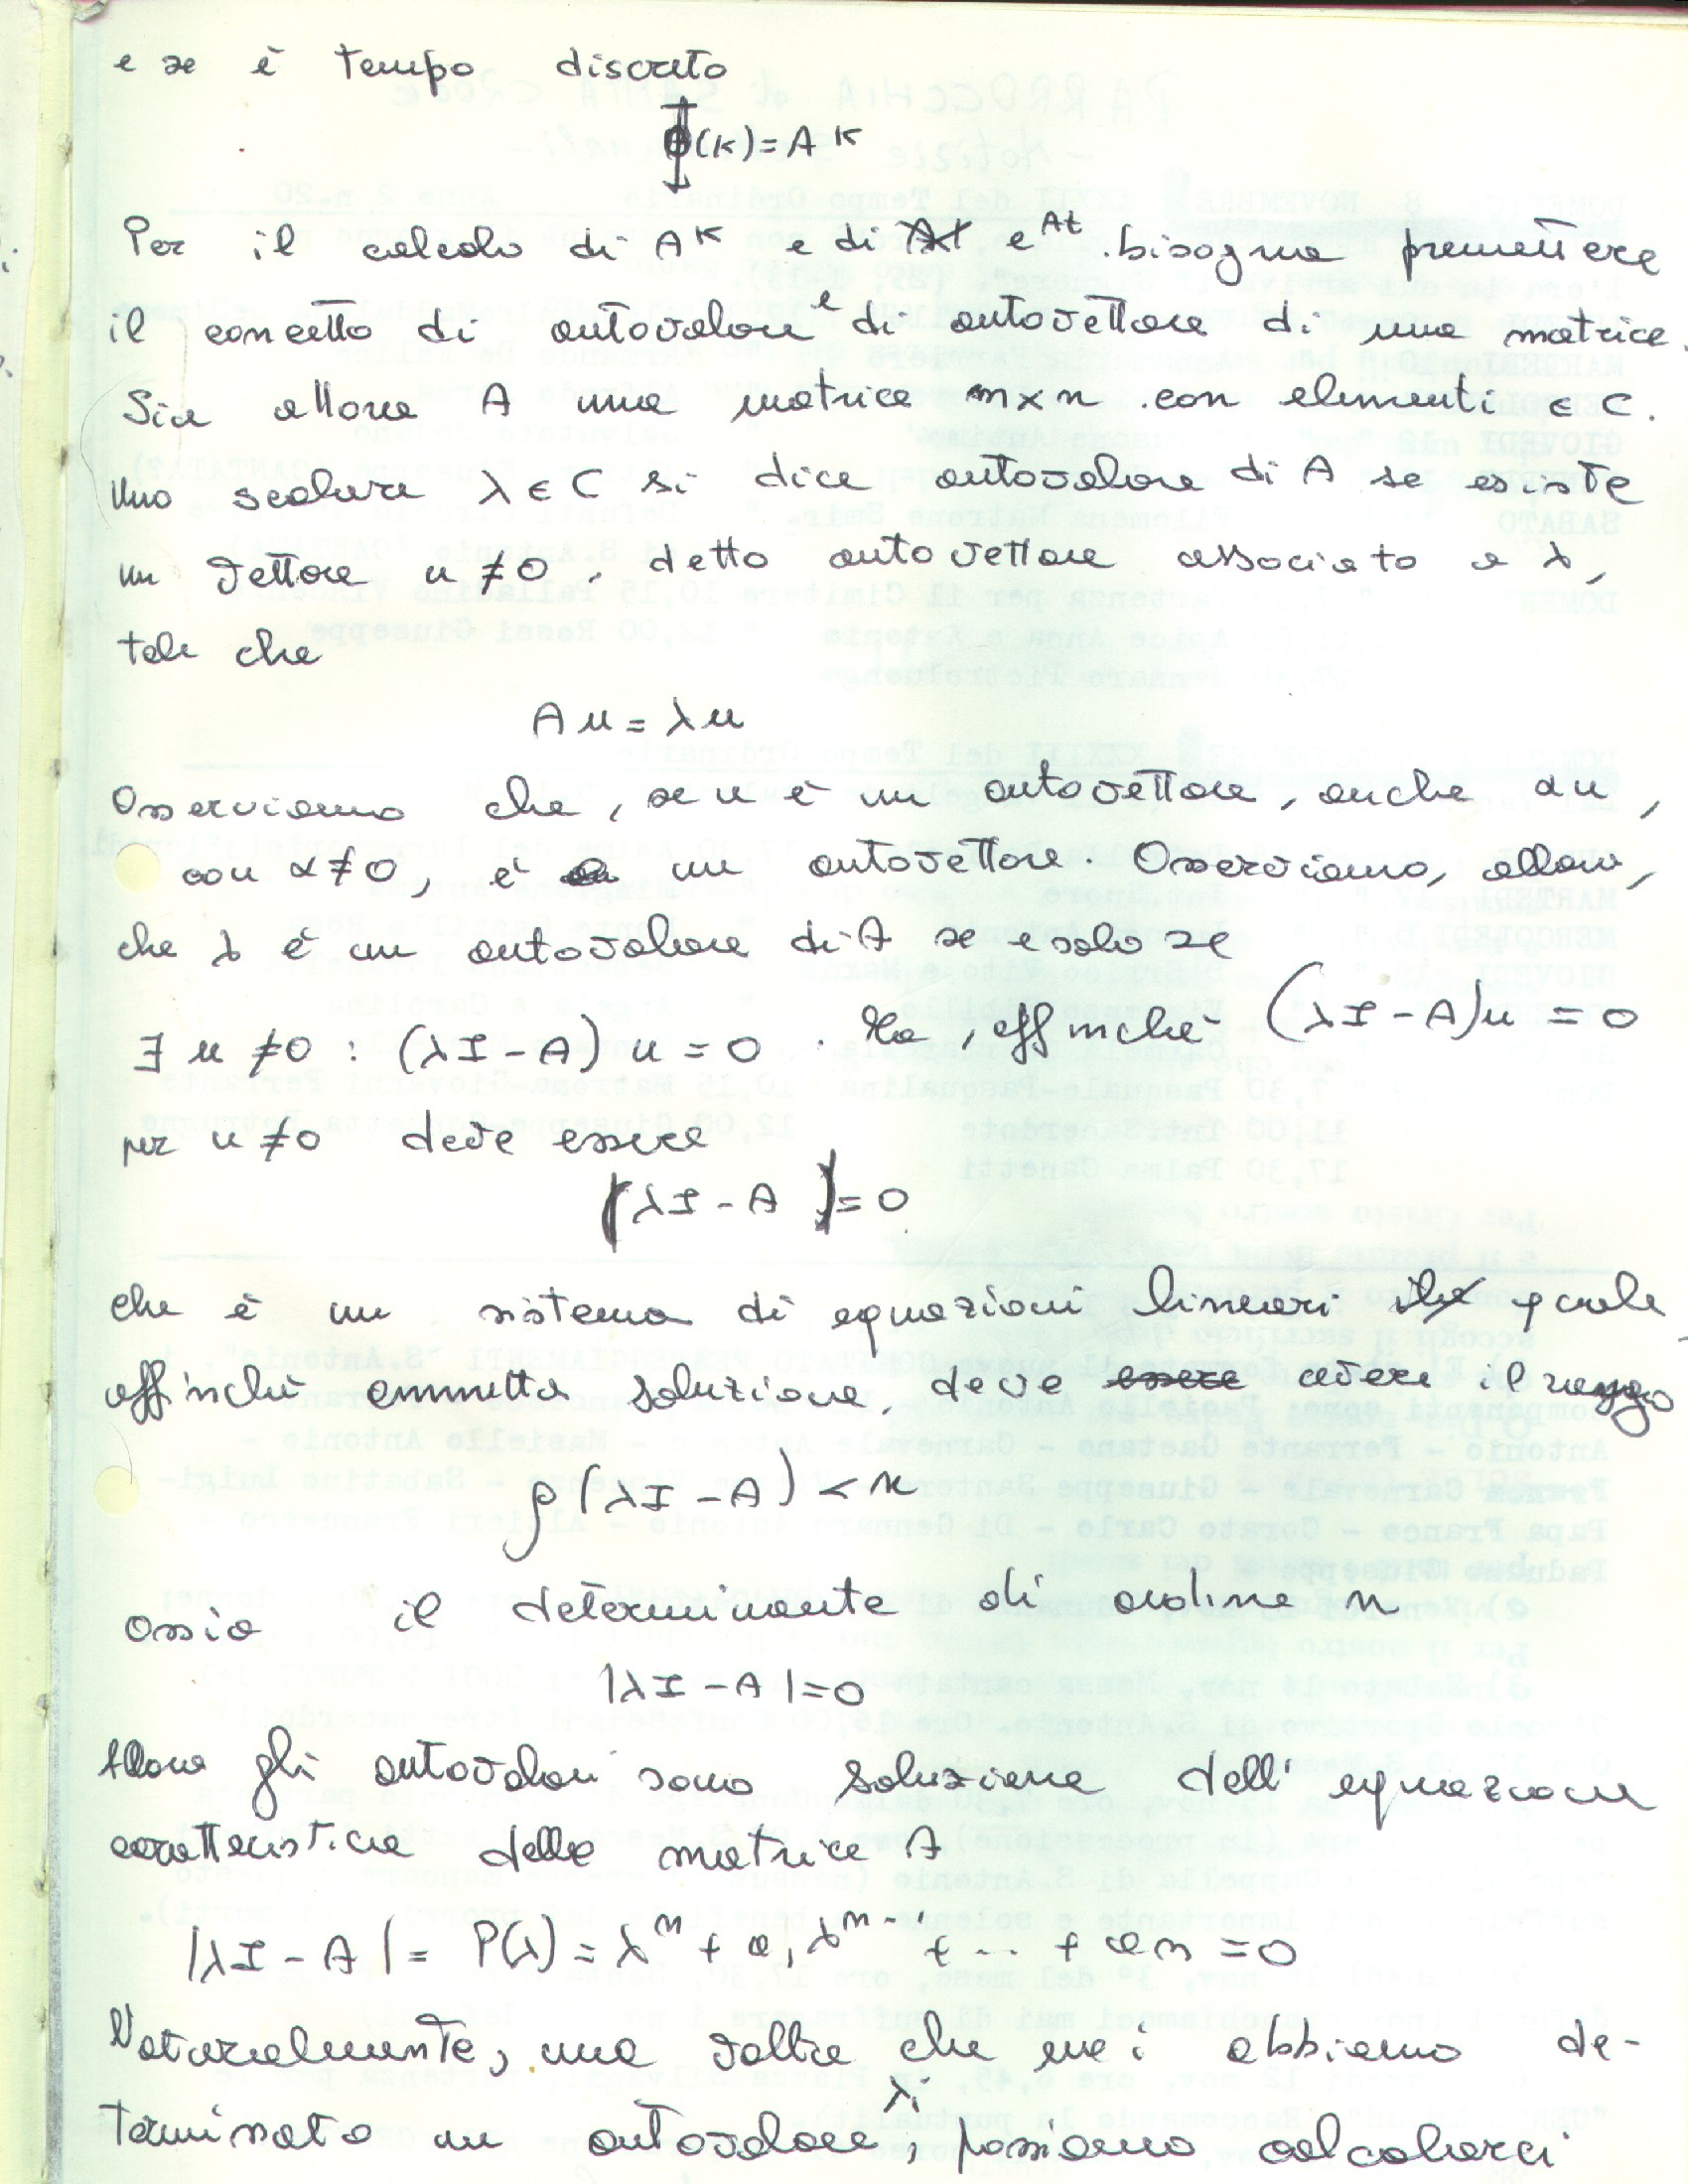 e se è tempo discreto
Φ(k)=A^k
Per il calcolo di A^k e di e^At bisogna premettere
il concetto di autovalore e di autovettore di una matrice.
Sia allora A una matrice n×n con elementi ∈ C.
Uno scalare λ∈C si dice autovalore di A se esiste
un vettore u≠0, detto autovettore associato a λ,
tale che
Au=λu
Osserviamo che, se u è un autovettore, anche αu,
con α≠0, è un autovettore. Osserviamo, allora,
che λ è un autovalore di A se e solo se
∃ u≠0 : (λI-A) u=0. Ma, affinché (λI-A)u=0
per u≠0 deve essere
(λI-A)=0
che è un sistema di equazioni lineari quale
affinché ammetta soluzione, deve avere il rango
ρ(λI-A)<n
ossia il determinante di ordine n
|λI-A|=0
Allora gli autovalori sono soluzione dell'equazione
caratteristica della matrice A
|λI-A|= P(λ)=λ^n+a₁λ^n-1+...+an=0
Naturalmente, una volta che noi abbiamo de-
terminato un autovalore λi, possiamo calcolarci